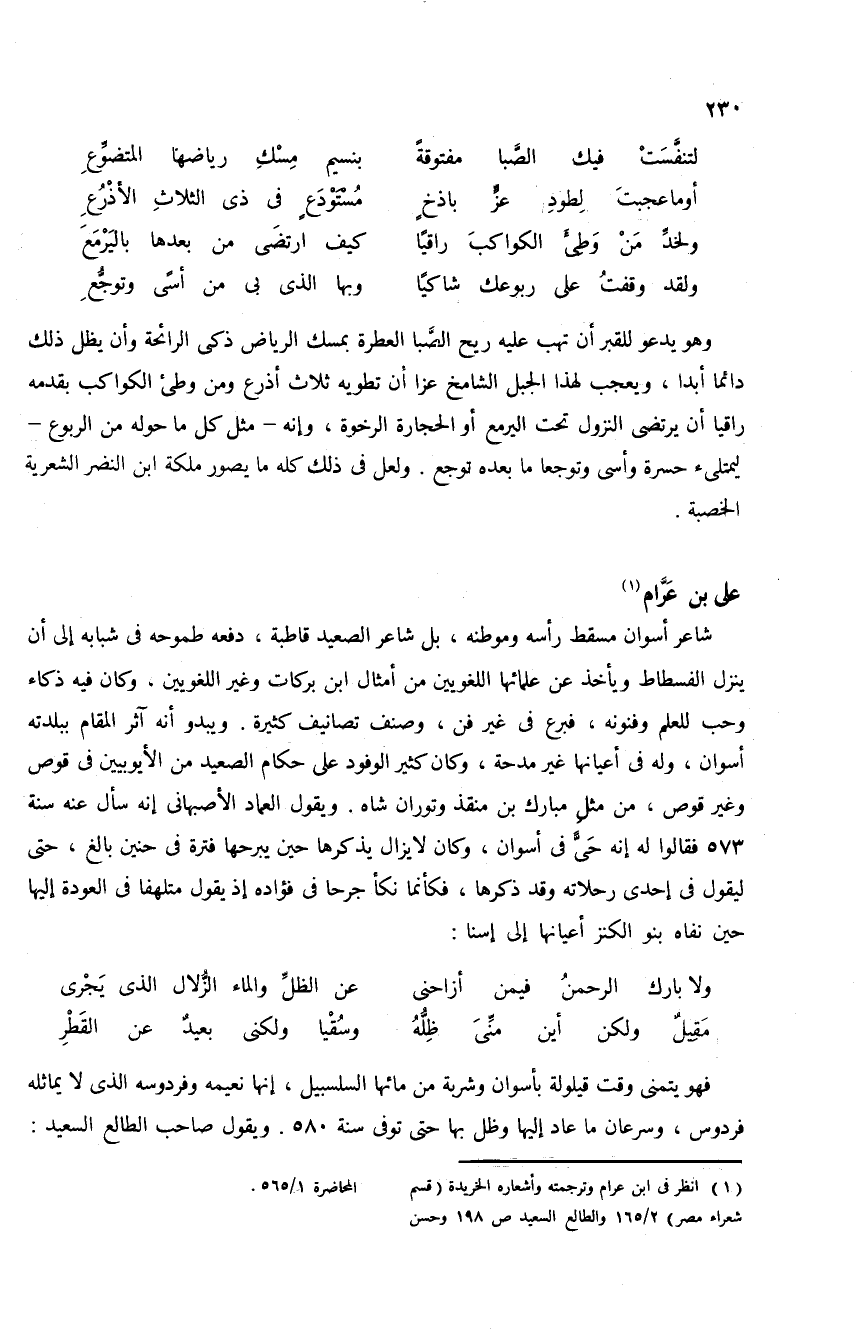 ٢٣٠
لتنفَّسَتْ فيك الصَّبا مفتوقةً بنسيم مِسْكِ رياضها المتضوِّعِ
أوما عجبتَ لِطودِ عزٍّ باذخٍ مُسْتَوْدَعٍ فى ذى الثلاثِ الأذْرُعِ
ولخدِّ مَنْ وَطِئَ الكواكبَ راقيًا كيف ارتضَى من بعدها باليَرْمَعَ
ولقد وقفتُ على ربوعك شاكيًا وبها الذى بى من أسًى وتوجُّعِ
وهو يدعو للقبر أن تهب عليه ريح الصَّبا العطرة بمسك الرياض ذكى الرائحة وأن يظل ذلك
دائما أبدا ، ويعجب لهذا الجبل الشامخ عزا أن تطويه ثلاث أذرع ومن وطئ الكواكب بقدمه
راقيا أن يرتضى النزول تحت اليرمع أو الحجارة الرخوة ، وإنه – مثل كل ما حوله من الربوع –
ليمتلىء حسرة وأسى وتوجعا ما بعده توجع . ولعل فى ذلك كله ما يصور ملكة ابن النضر الشعرية
الخصبة .
على بن عَرَّام(١)
شاعر أسوان مسقط رأسه وموطنه ، بل شاعر الصعيد قاطبة ، دفعه طموحه فى شبابه إلى أن
ينزل الفسطاط ويأخذ عن علمائها اللغويين من أمثال ابن بركات وغير اللغويين . وكان فيه ذكاء
وحب للعلم وفنونه ، فبرع فى غير فن ، وصنف تصانيف كثيرة . ويبدو أنه آثر المقام ببلدته
أسوان ، وله فى أعيانها غير مدحة ، وكان كثير الوفود على حكام الصعيد من الأيوبيين فى قوص
وغير قوص ، من مثلِ مبارك بن منقذ وتوران شاه . ويقول العماد الأصبهانى إنه سأل عنه سنة
٥٧٣ فقالوا له إنه حَىٌّ فى أسوان ، وكان لايزال يذكرها حين يبرحها فترة فى حنين بالغ ، حتى
ليقول فى إحدى رحلاته وقد ذكرها ، فكأنما نكأ جرحا فى فؤاده إذ يقول متلهفا فى العودة إليها
حين نفاه بنو الكنز أعيانها إلى إسنا :
ولا بارك الرحمنُ فيمن أزاحنى عن الظلِّ والماء الزُّلال الذى يَجْرى
مَقِيلٌ ولكن أين منِّىَ ظِلُّهُ وسُقْيا ولكنى بعيدٌ عن القَطْرِ
فهو يتمنى وقت قيلولة بأسوان وشربة من مائها السلسبيل ، إنها نعيمه وفردوسه الذى لا يماثله
فردوس ، وسرعان ما عاد إليها وظل بها حتى توفى سنة ٥٨٠ . ويقول صاحب الطالع السعيد :
(١) انظر فى ابن عرام وترجمته وأشعاره الخريدة (قسم
شعراء مصر) ١٦٥/٢ والطالع السعيد ص ١٩٨ وحسن
المحاضرة ٥٦٥/١ .